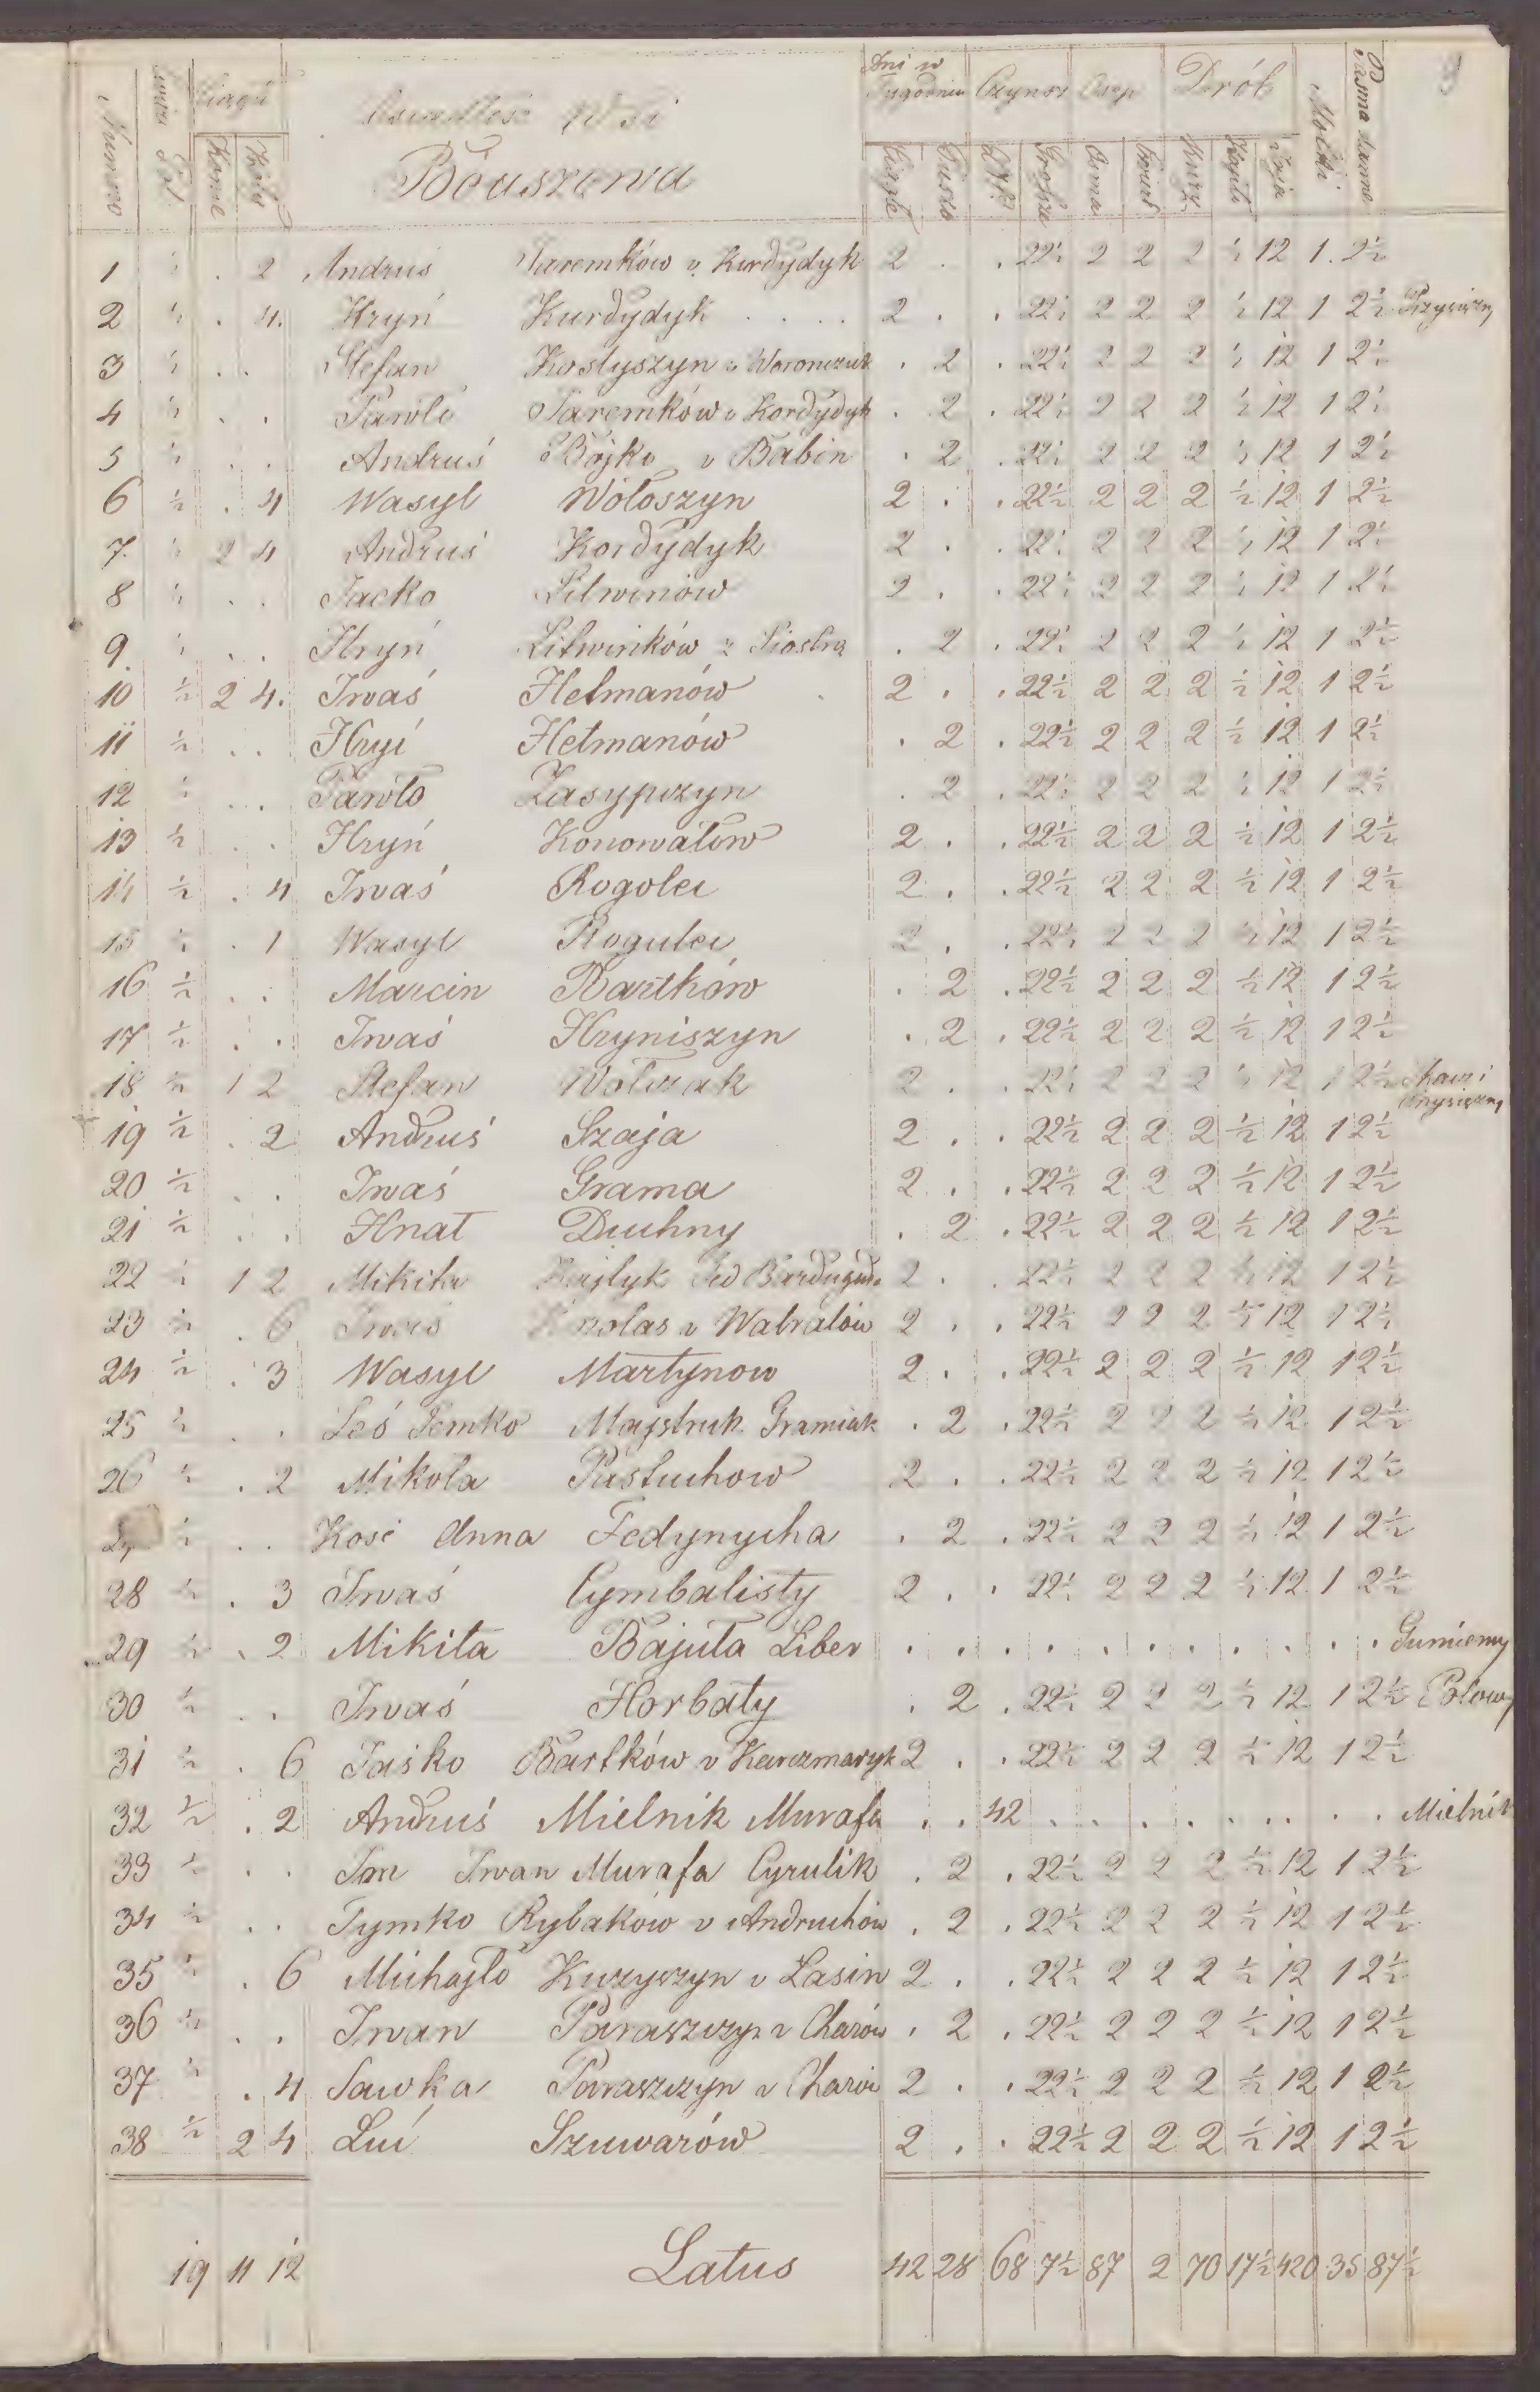 Numero Ciągu Konie Woły Osiadłość Wsi Dni w Tygodniu Ciągłe Piesze Czynsz Złp Grosze Osep Drób Kury Kapł. Jaja Motki Pasma dawne
Bouszowa
1 ½ . 2 Andrus Jaremków v. Kurdydyk 2 . . 22½ 2 2 2 ½ 12 1 2½
2 ½ . 4. Hryń Kurdydyk . . . . 2 . . 22½ 2 2 2 ½ 12 1 2½ Przysiężny
3 ½ . . Stefan Kostyszyn v Woronczuk . 2 . 22½ 2 2 2 ½ 12 1 2½
4 ½ . . Pawło Jaremków v Kordydyk . 2 . 22½ 2 2 2 ½ 12 1 2½
5 ½ . . Andruś Bojko v Babin . 2 . 22½ 2 2 2 ½ 12 1 2½
6 ½ . 4 Wasyl Wołoszyn 2 . . 22½ 2 2 2 ½ 12 1 2½
7. ½ 2 4 Andruś Kordydyk 2 . . 22½ 2 2 2 ½ 12 1 2½
8 ½ . . Jacko Litwinów 2 . . 22½ 2 2 2 ½ 12 1 2½
9. ½ . . Hryń Litwinków z Siostrą . 2 . 22½ 2 2 2 ½ 12 1 2½
10 ½ 2 4. Iwaś Hetmanów 2 . . 22½ 2 2 2 ½ 12 1 2½
11 ½ . . Hryć Hetmanów . 2 . 22½ 2 2 2 ½ 12 1 2½
12 ½ . . Pawło Zasypczyn . 2 . 22½ 2 2 2 ½ 12 1 2½
13 ½ . . Hryń Konowałow 2 . . 22½ 2 2 2 ½ 12 1 2½
14 ½ . 4 Iwaś Rogolei 2 . . 22½ 2 2 2 ½ 12 1 2½
15 ½ . 1 Wasyl Rogulei 2 . . 22½ 2 2 2 ½ 12 1 2½
16 ½ . . Marcin Bartków . 2 . 22½ 2 2 2 ½ 12 1 2½
17 ½ . . Iwaś Hryniszyn . 2 . 22½ 2 2 2 ½ 12 1 2½
18 ½ 1 2 Stefan Wołczak 2 . . 22½ 2 2 2 ½ 12 1 2½ Przysiężny
19 ½ . 2 Andruś Szaja 2 . . 22½ 2 2 2 ½ 12 1 2½
20 ½ . . Iwaś Grama 2 . . 22½ 2 2 2 ½ 12 1 2½
21 ½ . . Hnat Duchny . 2 . 22½ 2 2 2 ½ 12 1 2½
22 ½ 1 2 Mikita 2 . . 22½ 2 2 2 ½ 12 1 2½
23 ½ . 6 Iwaś v Wabratów 2 . . 22½ 2 2 2 ½ 12 1 2½
24 ½ . 3 Wasyl Martynow 2 . . 22½ 2 2 2 ½ 12 1 2½
25 ½ . . Leś Semko Majstruk Gramiak . 2 . 22½ 2 2 2 ½ 12 1 2½
26 ½ . 2 Mikoła Pastuchow 2 . . 22½ 2 2 2 ½ 12 1 2½
27 ½ . . Kość Anna Fedynycha . 2 . 22½ 2 2 2 ½ 12 1 2½
28 ½ . 3 Iwaś Cymbalisty 2 . . 22½ 2 2 2 ½ 12 1 2½
29 ½ . 2 Mikita Bajuła Liber . . . . . . . . . . . Gumienny
30 ½ . . Iwaś Horbaty . 2 . 22½ 2 2 2 ½ 12 1 2½ Polowy
31 ½ . 6 Jaśko Bartków v Karczmaryk 2 . . 22½ 2 2 2 ½ 12 1 2½
32 ½ . 2 Andruś Mielnik Murafa . . 42 . . . . . . . . Mielnik
33 ½ . . Jm Iwan Murafa Cyrulik . 2 . 22½ 2 2 2 ½ 12 1 2½
34 ½ . . Tymko Rybaków v Andruchów . 2 . 22½ 2 2 2 ½ 12 1 2½
35 ½ . 6 Michajło Kuzyszyn v Lasin 2 . . 22½ 2 2 2 ½ 12 1 2½
36 ½ . . Iwan Paraszczyn v Charów . 2 . 22½ 2 2 2 ½ 12 1 2½
37 ½ . 4 Sawka Paraszczyn v Charów 2 . . 22½ 2 2 2 ½ 12 1 2½
38 ½ 2 4 Luć Szuwarów 2 . . 22½ 2 2 2 ½ 12 1 2½
19 11 12 Latus 42 28 68 7½ 87 2 70 17½ 420 35 87½